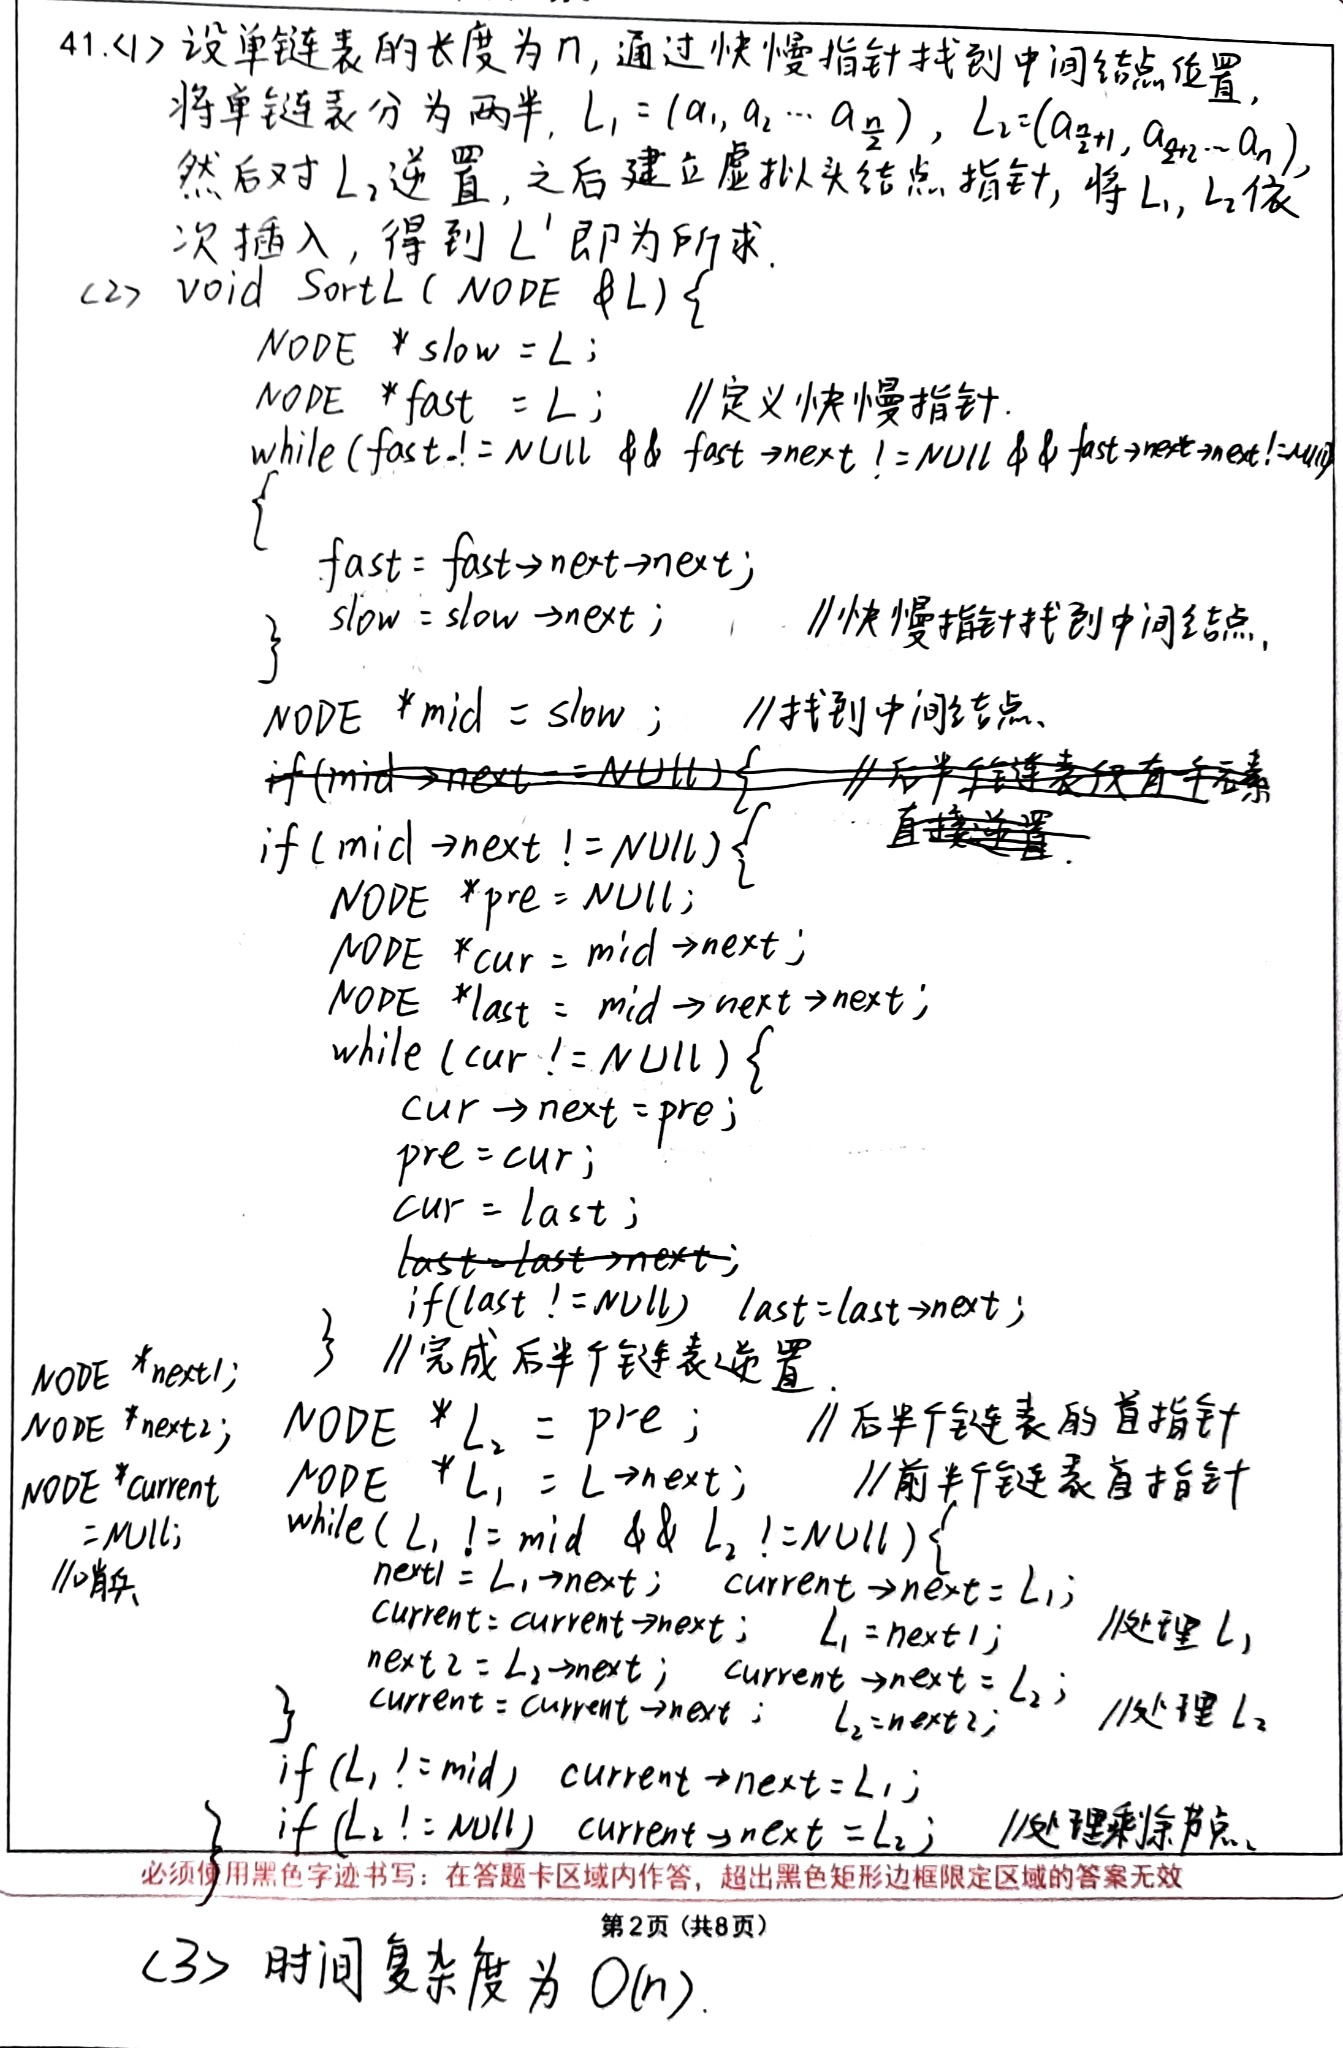 41.<1> 设单链表的长度为n,通过快慢指针找到中间结点位置,
将单链表分为两半, L₁=(a₁,a₂…a_{n/2}), L₂=(a_{n/2+1},a_{n/2+2}…a_n),
然后对L₂逆置,之后建立虚拟头结点指针,将L₁,L₂依
次插入,得到L'即为所求.
<2> void SortL(NODE &L){
NODE *slow=L;
NODE *fast =L; //定义快慢指针.
while(fast!=NULL && fast→next!=NULL && fast→next→next!=NULL)
{
fast=fast→next→next;
slow=slow→next; //快慢指针找到中间结点.
}
NODE *mid=slow; //找到中间结点、
if(mid→next==NULL){ //后半个链表仅有一个元素
直接逆置.
if(mid→next!=NULL){
NODE *pre=NULL;
NODE *cur=mid→next;
NODE *last=mid→next→next;
while(cur!=NULL){
cur→next=pre;
pre=cur;
cur=last;
last=last→next;
if(last!=NULL) last=last→next;
} //完成后半个链表逆置.
NODE *next1;
NODE *next2;
NODE *current
=NULL;
//哨兵
NODE *L₂=pre; //后半个链表的首指针
NODE *L₁=L→next; //前半个链表首指针
while(L₁!=mid && L₂!=NULL){
next1=L₁→next; current→next=L₁;
current=current→next; L₁=next1; //处理L₁
next2=L₂→next; current→next=L₂;
current=current→next; L₂=next2; //处理L₂
}
if(L₁!=mid) current→next=L₁;
if(L₂!=NULL) current→next=L₂; //处理剩余节点、
}
}
必须使用黑色字迹书写:在答题卡区域内作答,超出黑色矩形边框限定区域的答案无效
第2页(共8页)
<3> 时间复杂度为O(n).